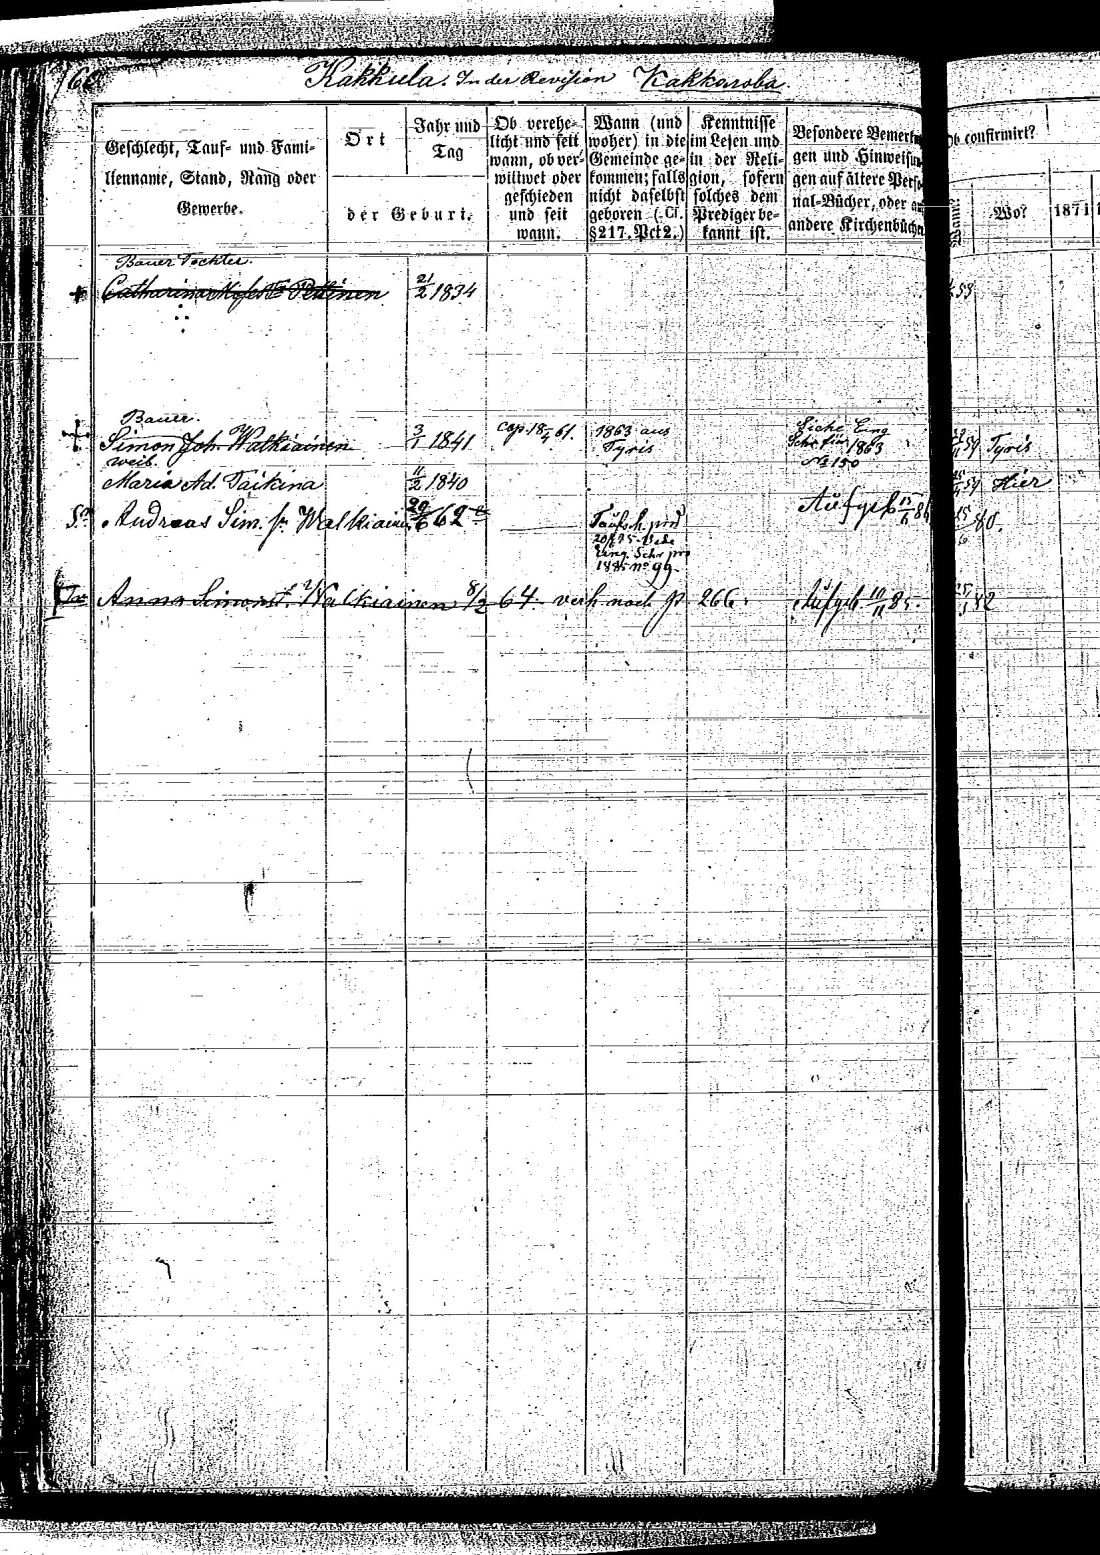 Kakkula. In der Revision Kakkarowa
Geschlecht, Tauf- und Fami-
liennamie, Stand, Rang oder
Gewerbe.
Ort
Jahr und
Tag
der Geburt.
Ob verehe-
licht und seit
wann, ob ver-
wittwet oder
geschieden
und seit
wann.
Wann (und
woher) in die
Gemeinde ge-
kommen; falls
nicht daselbst
geboren (Cf.
§ 217. Pct 2.)
Kenntnisse
im Lesen und
in der Reli-
gion, sofern
solches dem
Prediger be-
kannt ist.
Besondere Bemerku
gen und Hinweisun
gen auf ältere Perso
nal-Bücher, oder
andere Kirchenbüche
Ob confirmirt?
Wann?
Wo?
1871
Bauer Tochter.
Catharina Pettinen 21/2 1834
53
Bauer.
Simon Joh. Walkiainen 3/1 1841 cop. 18/4 61. 1863 aus Tyris Siehe Eing Schr für 1863 № 150 Tyris
weib.
Maria Ad. Taikina 11/2 1840 Hier
Sn Andreas Sim. Sn Walkiainen 29/6 62 Aufgeb 15/6 86 80.
Taufsch. pro
Eing. Schr pro
1885 no 99.
Tr Anna Simonst. Walkiainen 8/2 64 verh nach p. 266. Aufgeb 10/11 85. 82